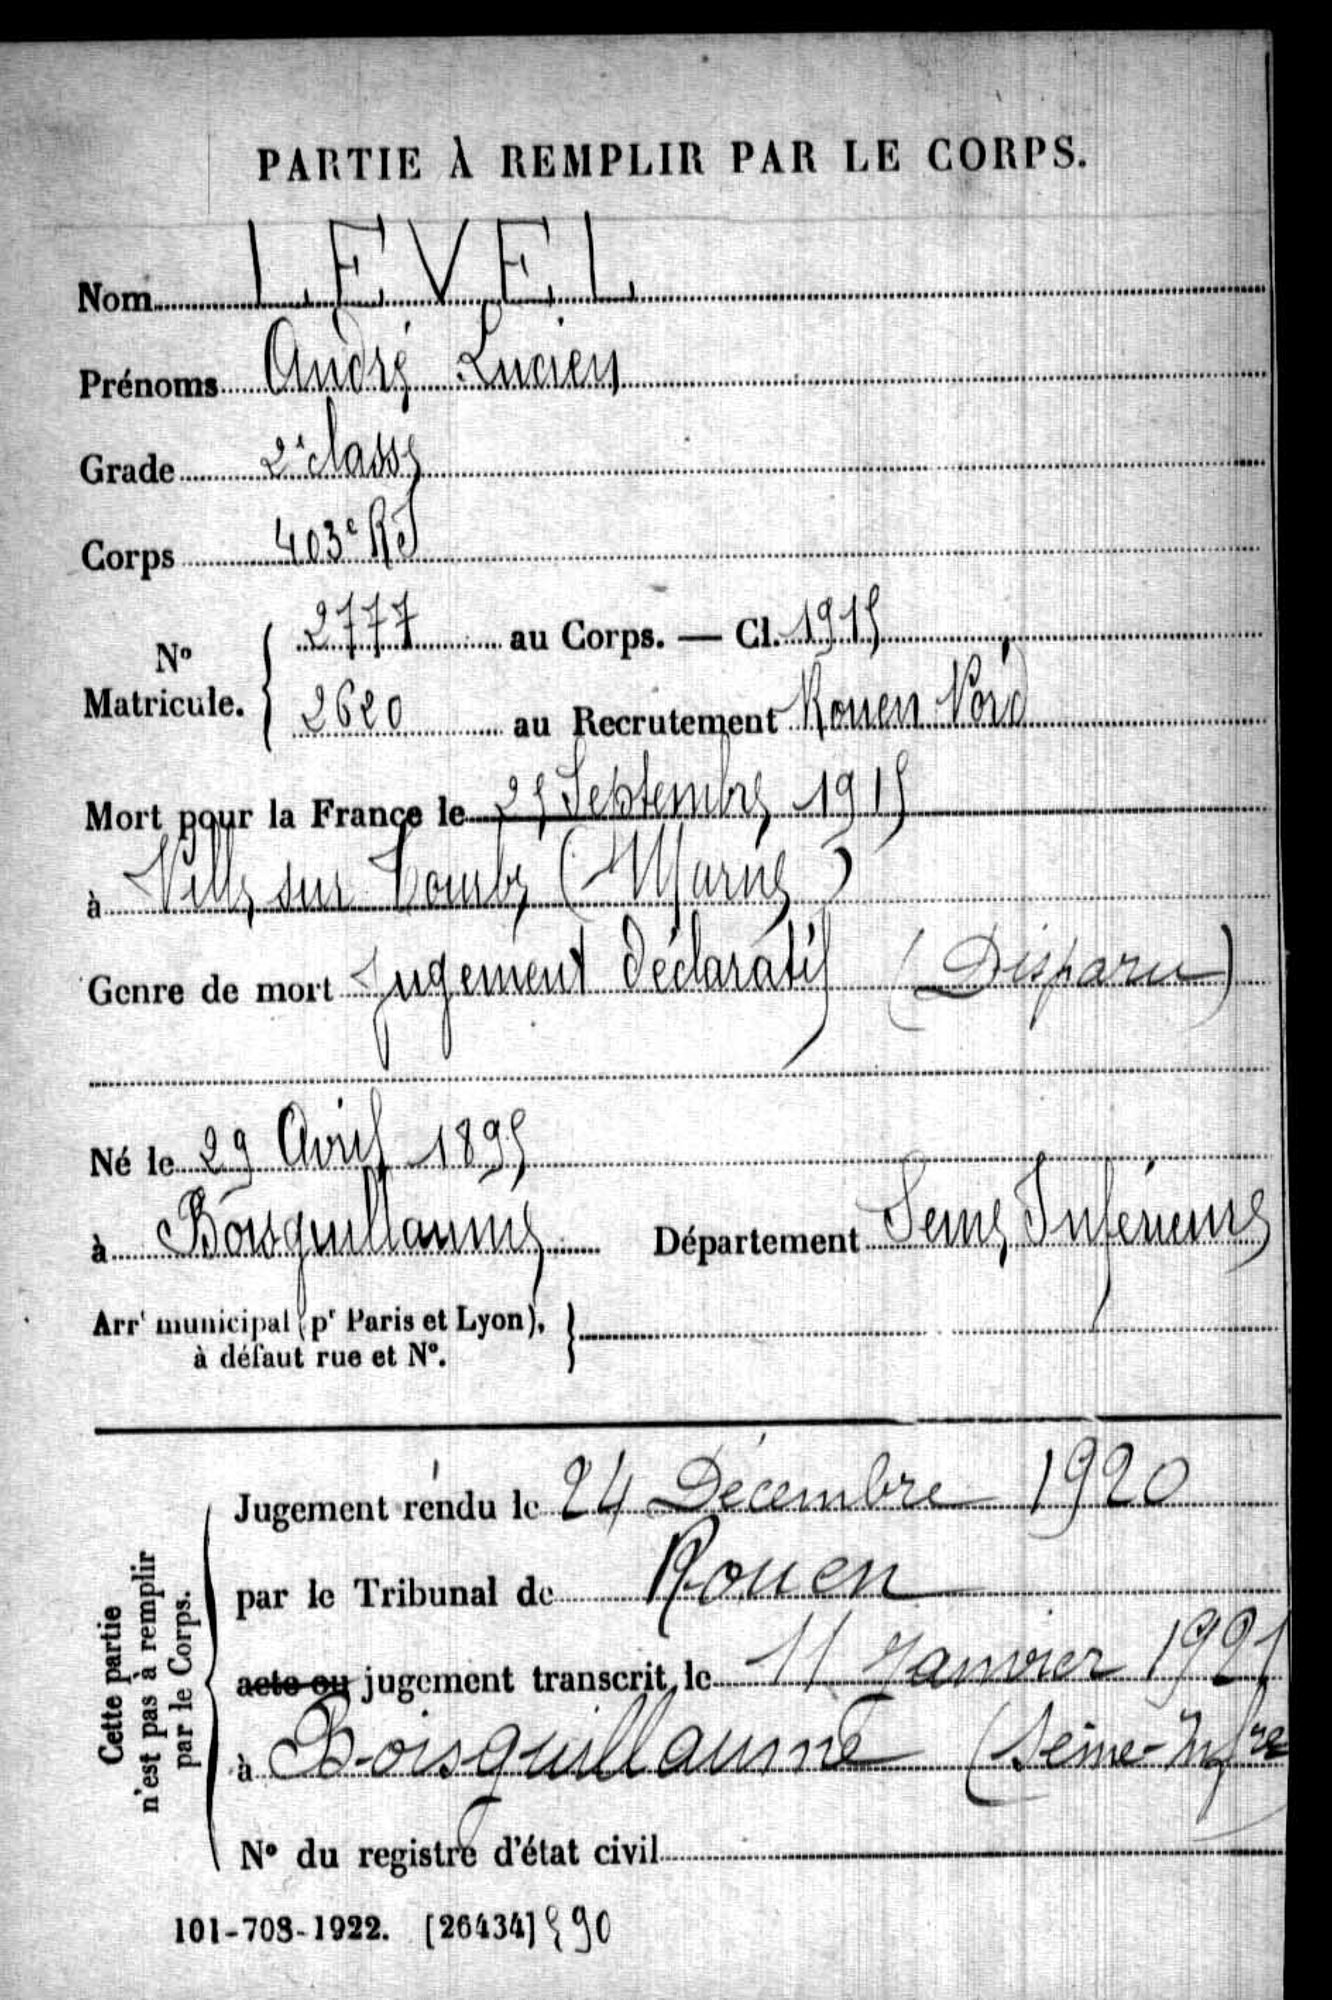 PARTIE À REMPLIR PAR LE CORPS.
Nom LEVEL
Prénoms André Lucien
Grade 2e classe
Corps 403e RI
No Matricule. 2777 au Corps. — Cl. 1915
2620 au Recrutement Rouen Nord
Mort pour la France le 25 Septembre 1915
à Ville sur Tourbe (Marne)
Genre de mort Jugement déclaratif (Disparu)
Né le 29 Avril 1895
à Boisguillaume Département Seine Inférieure
Arrt municipal (pr Paris et Lyon),
à défaut rue et No.
Cette partie
n'est pas à remplir
par le Corps.
Jugement rendu le 24 Décembre 1920
par le Tribunal de Rouen
acte ou jugement transcrit le 11 Janvier 1921
à Boisguillaume (Seine-Infre
No du registre d'état civil
101-708-1922. [26434] 90